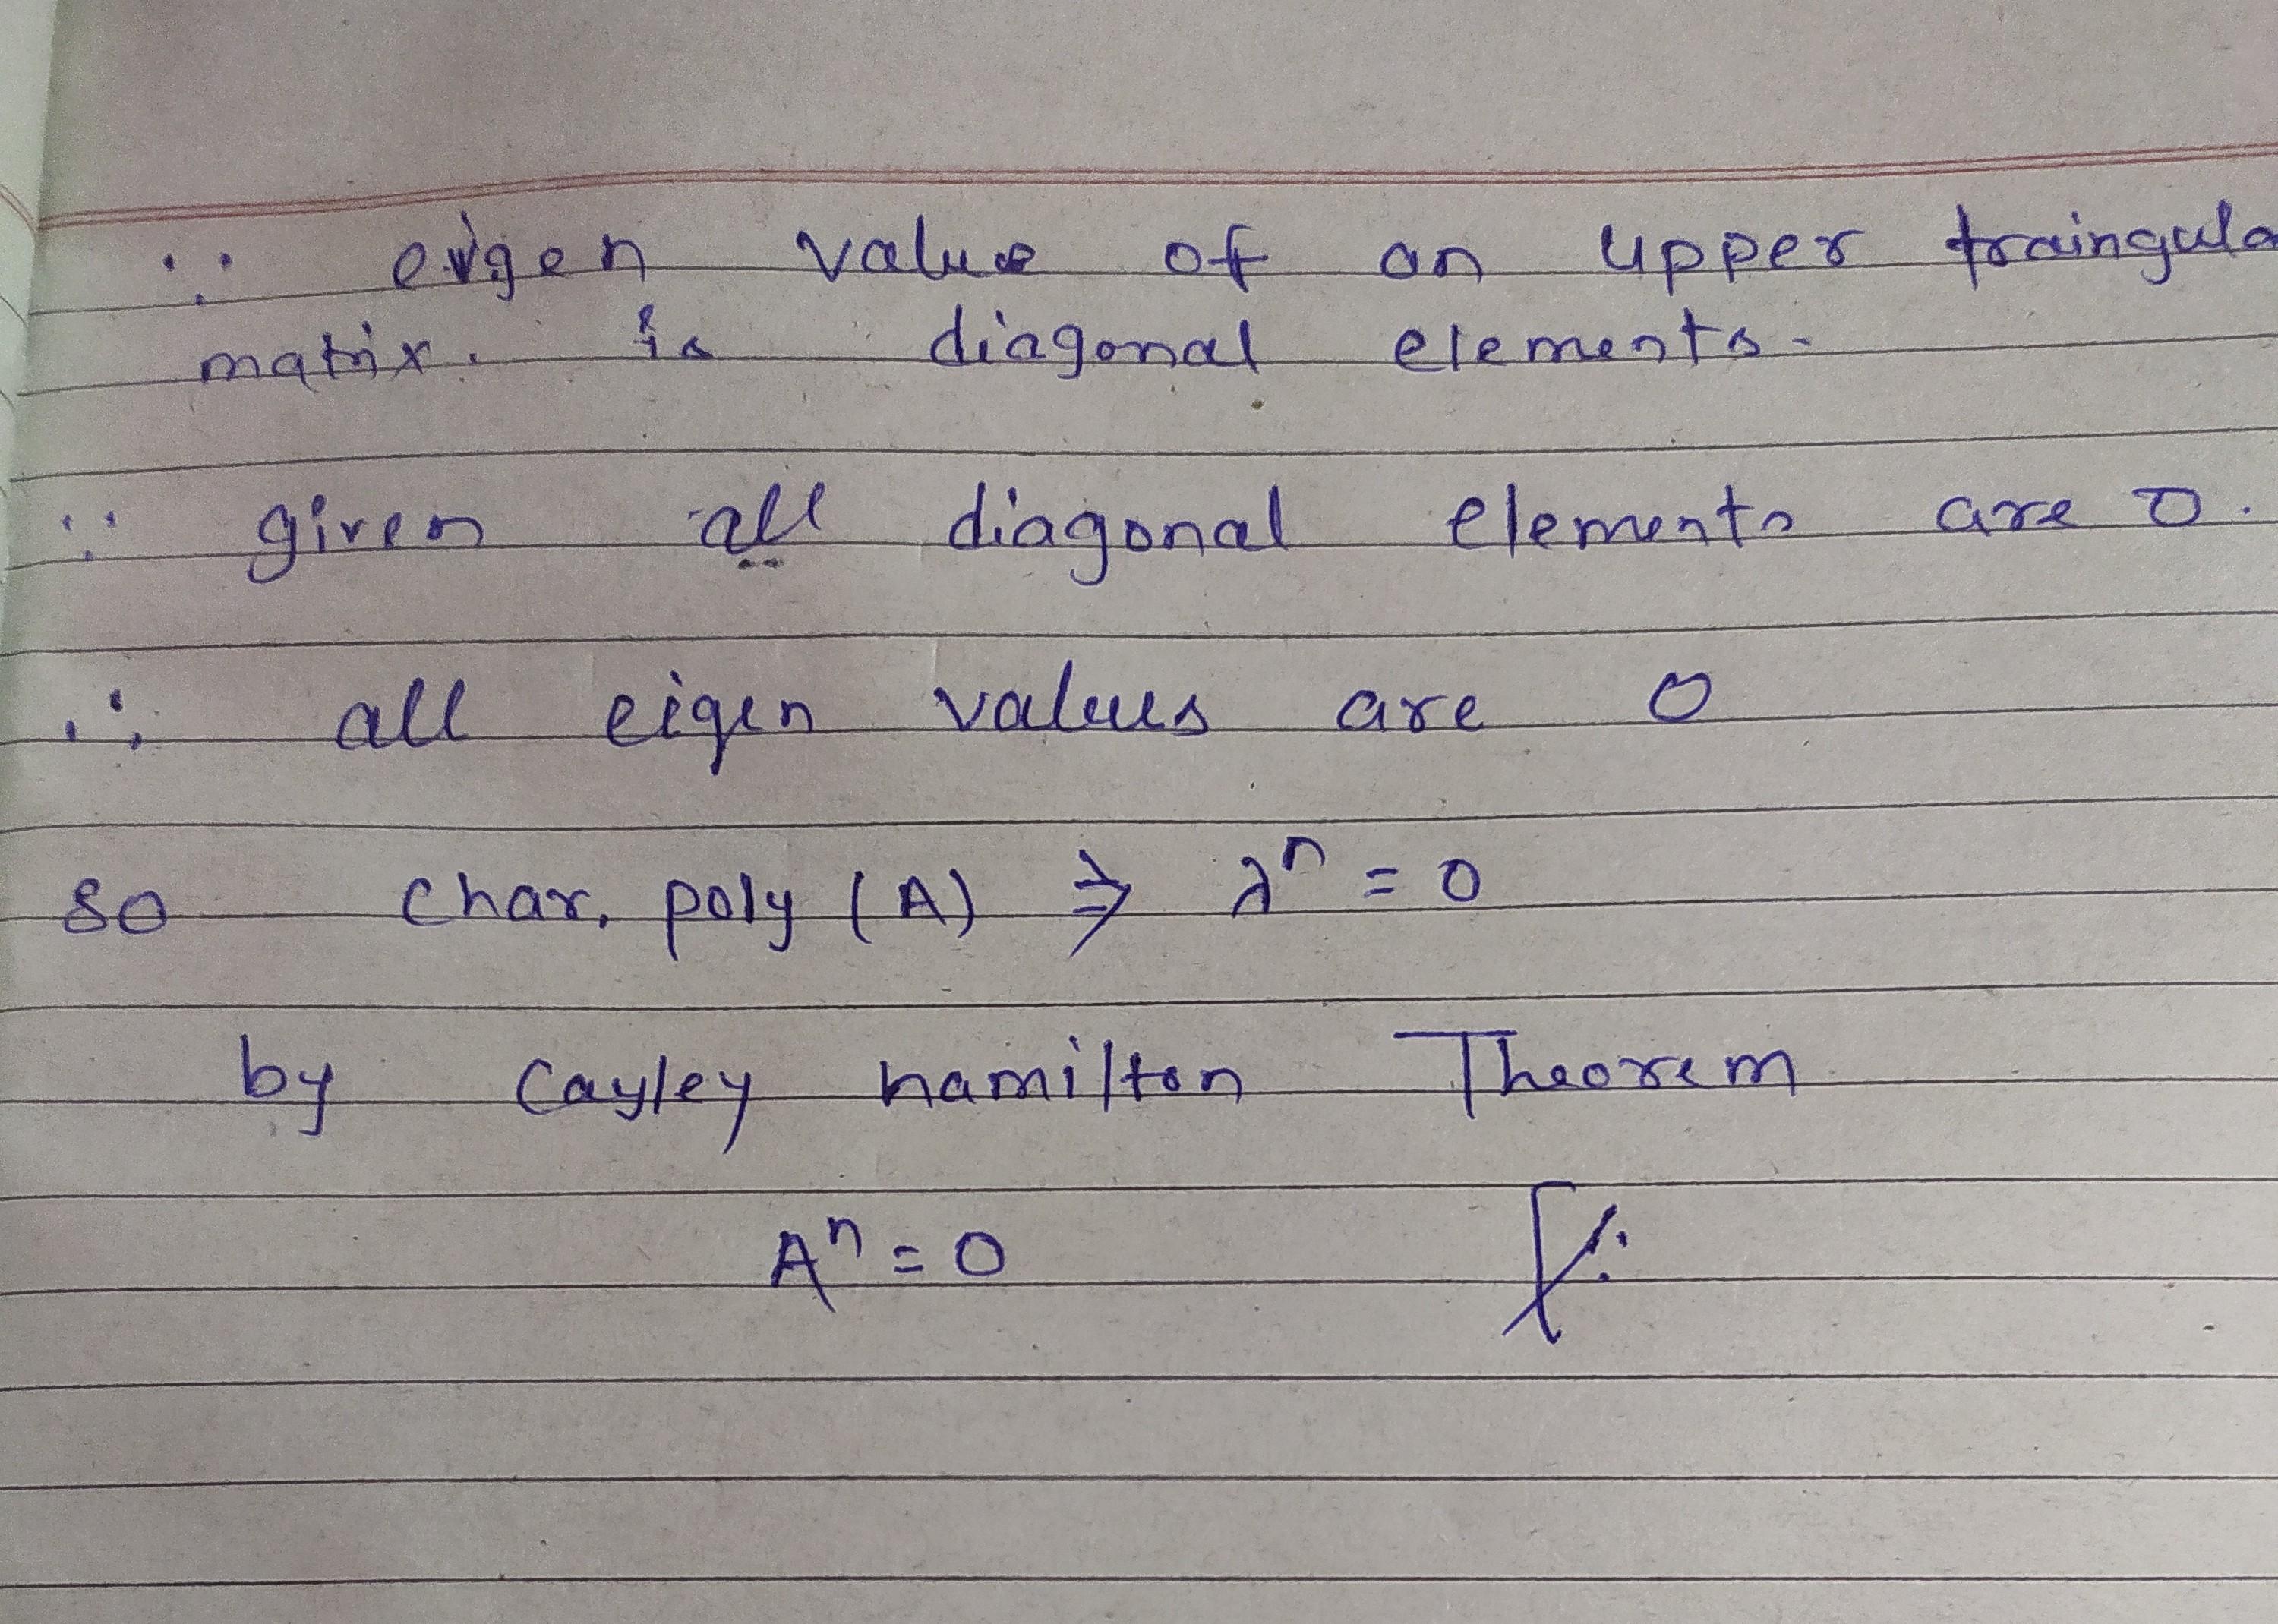 ∵ eigen value of an upper traingula
matrix. is diagonal elements.
∵ given all diagonal elements are 0.
∴ all eigen values are 0
so char. poly (A) ⇒ λⁿ = 0
by Cayley hamilton Theorem
Aⁿ = 0